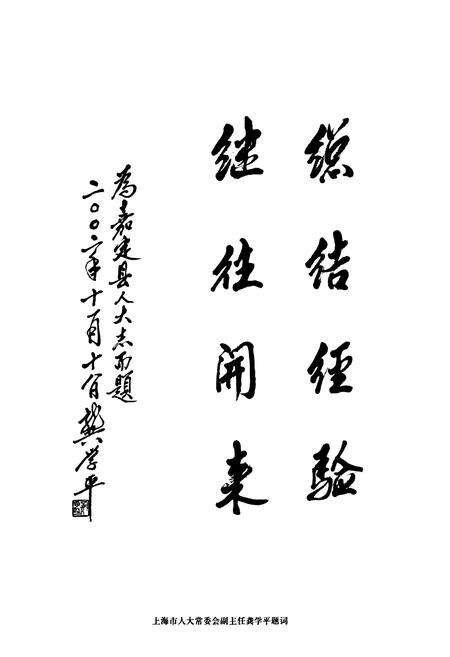 總结经验
继往開来
為嘉定县人大志而題
二〇〇 年十 月十 日 龚学平
上海市人大常委会副主任龚学平题词